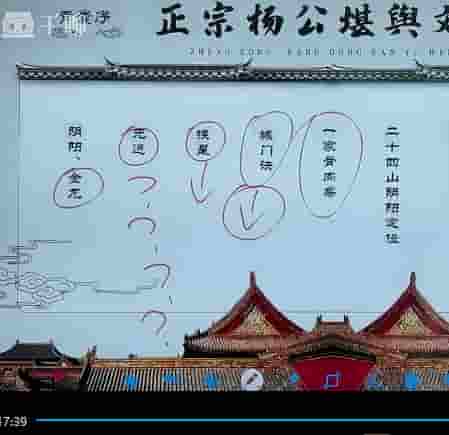 千聊
正宗杨公堪舆
ZHENG ZONG YANG GONG KAN YU WE
二十四山阴阳定位
一家骨肉
城门诀
挨星
阴阳、金龙
7:39